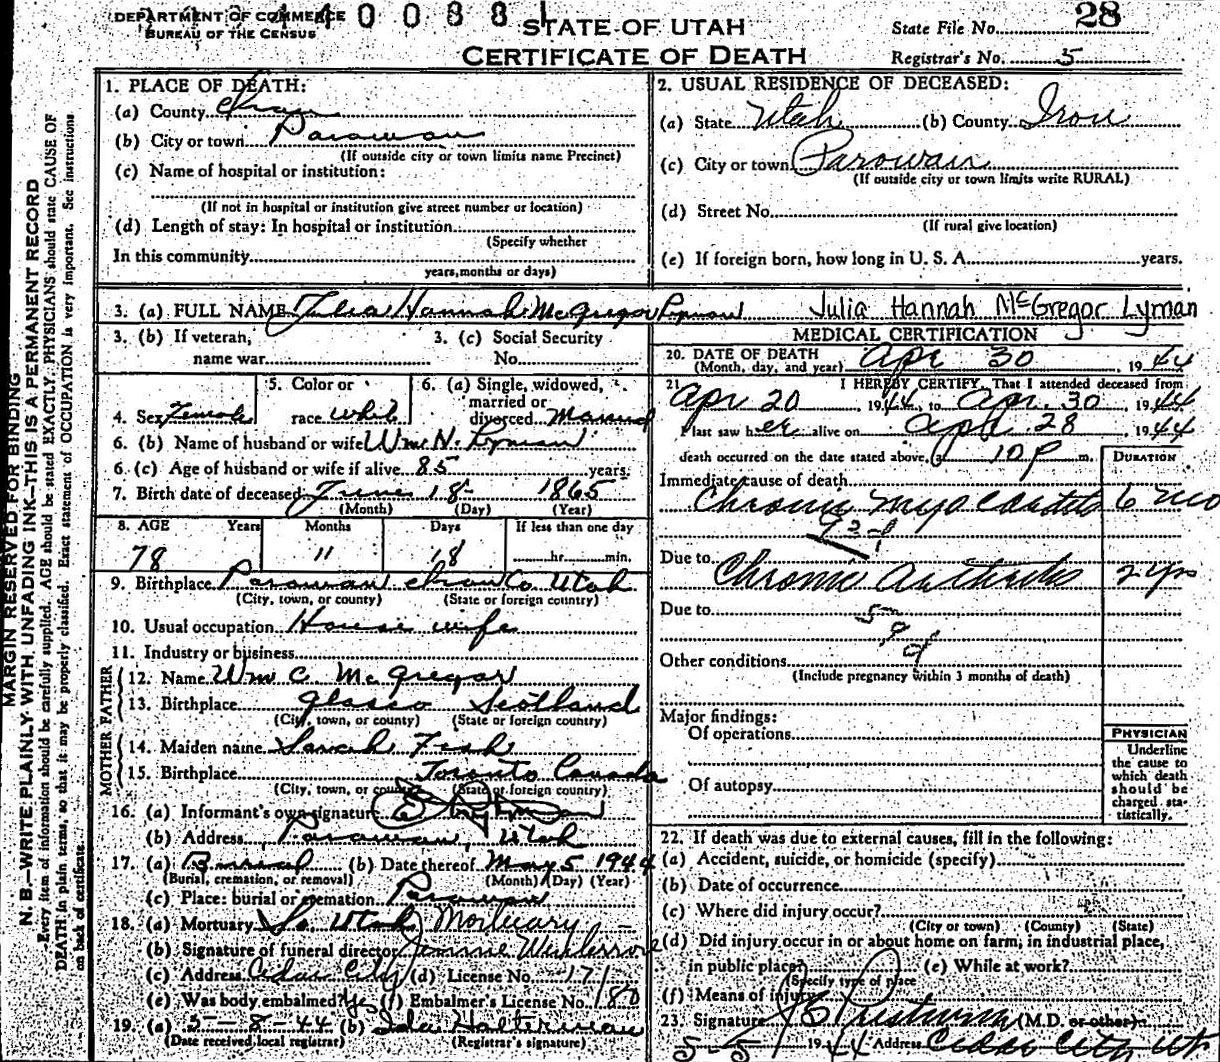 DEPARTMENT OF COMMERCE
BUREAU OF THE CENSUS
STATE OF UTAH
CERTIFICATE OF DEATH
State File No. 28
Registrar's No. 5
MARGIN RESERVED FOR BINDING
N. B.—WRITE PLAINLY WITH UNFADING INK—THIS IS A PERMANENT RECORD
Every item of information should be carefully supplied. AGE should be stated EXACTLY. PHYSICIANS should state CAUSE OF
DEATH in plain terms, so that it may be properly classified. Exact statement of OCCUPATION is very important. See instructions
on back of certificate.
1. PLACE OF DEATH:
(a) County Iron
(b) City or town Parowan
(If outside city or town limits name Precinct)
(c) Name of hospital or institution:
(If not in hospital or institution give street number or location)
(d) Length of stay: In hospital or institution
(Specify whether
In this community
years, months or days)
2. USUAL RESIDENCE OF DECEASED:
(a) State Utah (b) County Iron
(c) City or town Parowan
(If outside city or town limits write RURAL)
(d) Street No.
(If rural give location)
(e) If foreign born, how long in U. S. A. years.
3. (a) FULL NAME Julia Hannah McGregor Lyman Julia Hannah McGregor Lyman
3. (b) If veteran, name war
3. (c) Social Security No.
4. Sex Female
5. Color or race white
6. (a) Single, widowed, married or divorced Married
6. (b) Name of husband or wife Wm N. Lyman
6. (c) Age of husband or wife if alive 85 years.
7. Birth date of deceased June 18 1865
(Month) (Day) (Year)
8. AGE Years Months Days If less than one day
78 11 18 hr. min.
9. Birthplace Parowan Iron Co Utah
(City, town, or county) (State or foreign country)
10. Usual occupation House wife
11. Industry or business
FATHER
12. Name Wm C. McGregor
13. Birthplace Glasco Scotland
(City, town, or county) (State or foreign country)
MOTHER
14. Maiden name Sarah Fish
15. Birthplace Toronto Canada
(City, town, or county) (State or foreign country)
16. (a) Informant's own signature Lyman
(b) Address Parowan, Utah
17. (a) Burial (b) Date thereof May 5 1944
(Burial, cremation, or removal) (Month) (Day) (Year)
(c) Place: burial or cremation Parowan
18. (a) Mortuary So. Utah Mortuary
(b) Signature of funeral director
(c) Address Cedar City (d) License No. 171
(e) Was body embalmed? yes (f) Embalmer's License No. 180
19. (a) 5-8-44 (b) Ida Halterman
(Date received local registrar) (Registrar's signature)
MEDICAL CERTIFICATION
20. DATE OF DEATH Apr 30 1944
(Month, day, and year)
21. I HEREBY CERTIFY, That I attended deceased from
Apr 20, 1944, to Apr. 30, 1944
I last saw her alive on Apr 28, 1944
death occurred on the date stated above, 10 P m.
DURATION
Immediate cause of death
Chronic Myocarditis 6 mo
93d
Due to Chronic Arthritis 2 yrs
Due to 59d
Other conditions
(Include pregnancy within 3 months of death)
Major findings:
Of operations
Of autopsy
PHYSICIAN
Underline
the cause to
which death
should be
charged sta-
tistically.
22. If death was due to external causes, fill in the following:
(a) Accident, suicide, or homicide (specify)
(b) Date of occurrence
(c) Where did injury occur?
(City or town) (County) (State)
(d) Did injury occur in or about home on farm, in industrial place,
in public place? (e) While at work?
(Specify type of place
(f) Means of injury
23. Signature (M.D. or other)
5-5 1944 Address Cedar City Ut.